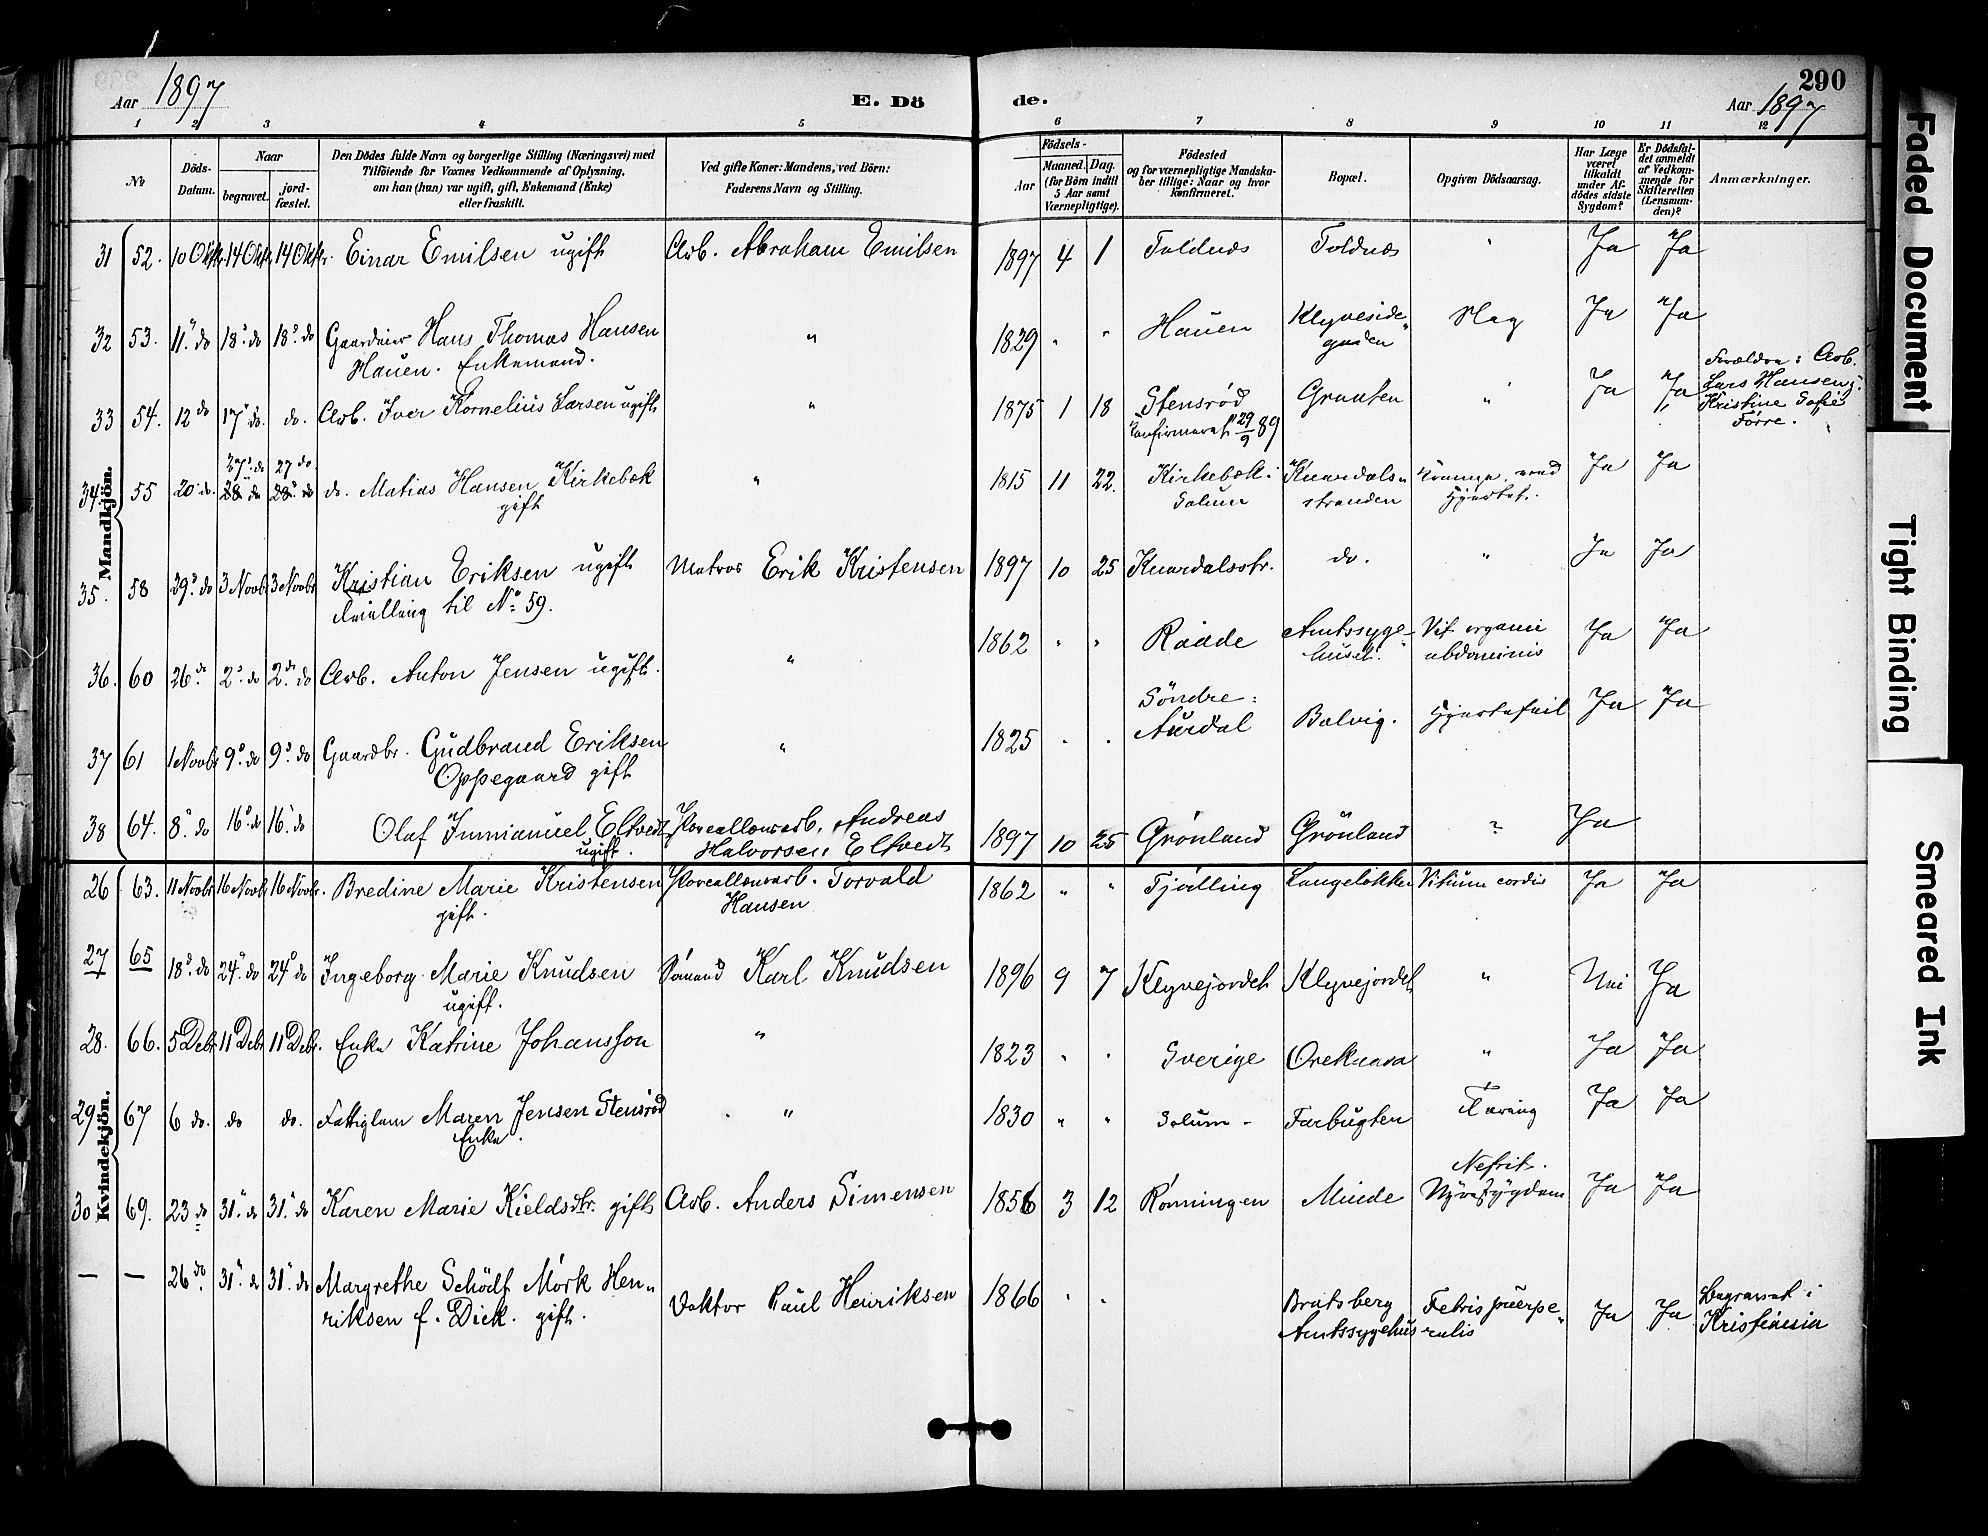 Aar 1897
E. Dö
de.
290
Aar 1897
1 2 3 4 5 6 7 8 9 10 11 12
No
Döds-Datum.
Naar
begravet.
jord-fæstet.
Den Dödes fulde Navn og borgerlige Stilling (Næringsvei) med
Tilföiende for Voxnes Vedkommende af Oplysning,
om han (hun) var ugift, gift, Enkemand (Enke)
eller fraskilt.
Ved gifte Koner: Mandens, ved Börn:
Faderens Navn og Stilling.
Födsels-
Aar
Maaned.
Dag.
(for Börn indtil
5 Aar samt
Værnepligtige).
Födested
og for værnepligtige Mandska-
ber tillige: Naar og hvor
konfirmeret.
Bopæl.
Opgiven Dödsaarsag.
Har Læge
været
tilkaldt
under Af-
dödes sidste
Sygdom?
Er Dödsfal-
det anmeldt
af Vedkom-
mende for
Skifteretten
(Lensman-
den)?
Anmærkninger.
Mandkjön.
31 52. 10 Oktr. 14 Oktr. 14 Oktr. Einar Emilsen ugift Arb. Abraham Emilsen 1897 4 1 Toldnæs Toldnæs " Ja Ja
32 53. 11 do 18 do 18 do Gaardeier Hans Thomas Hansen
Hauen. Enkemand.
" 1829 " " Hauen Klyveside-
gaden
Slag Ja Ja
33 54. 12 do 17 do. do. Arb. Iver Kornelius Larsen ugift " 1875 1 18 Stensrød
konfirmeret 29/9 89
Graaten " Ja Ja
Forældre: Arb.
Lars Hansen
Kristine Sofie
Tørre.
34. 55 20 do. 27 do 27 do
28 do 28 do
do. Matias Hansen Kirkebæk
gift
" 1815 11 22. Kirkebæk i
Solum
Knardals-
stranden
Hjertet. Ja Ja
35. 58 29 do 3 Novbr 3 Novbr Kristian Eriksen ugift
Tvilling til No 59.
Matros Erik Kristensen 1897 10 25 Knardalsstr. do. " Ja Ja
36. 60 26 do 2 do 2 do Arb. Anton Jensen ugift. " 1862 " " Raade Amtssyge-
huset.
Vit organi
abdominis
Ja Ja
37 61 1 Novbr 9 do 9 do Gaardbr. Gudbrand Eriksen
Oppegaard gift
" 1825 " " Söndre-
Aurdal
Bolvig. Hjertefeil Ja Ja
38 64. 8 do 16 do 16 do Olaf Immanuel Eltvedt
ugift.
Porcellænsarb. Andreas
Halvorsen Eltvedt
1897 10 25 Grönland Grönland ? Ja
Kvindekjön.
26 63. 11 Novbr 16 Novbr 16 Novbr. Bredine Marie Kristensen
gift.
Porcellænsarb. Torvald
Hansen
1862 " " Tjølling Langeløkken Vitium cordis Ja Ja
27 65 18 do 24 do 24 do Ingeborg Marie Knudsen
ugift.
Sömand Karl Knudsen 1896 9 7 Klyvejordet Klyvejordet " Nei Ja
28. 66. 5 Debr 11 Debr 11 Debr. Enke Katrine Johansson " 1823 " " Sverige Oreknaca " Ja Ja
29 67 6 do. do do. Fattiglem Maren Jensen Stensrød
Enke.
" 1830 " " Solum Farbugten Tæring Ja Ja
30 69. 23 do 31 do 31 do Karen Marie Kieldsdtr. gift Arb. Anders Simensen 1856 3 12 Rönningen Minde Nefrit.
Nyresygdom
Ja Ja
— — 26 do. 31 do 31 do Margrethe Schödt Mörk Hen-
riksen f. Dick. gift.
Doktor Paul Henriksen 1866 " " Bratsberg
Amtssygehus
Febris puerpe-
ralis
Ja Ja Begravet i
Kristiania
Faded Document
Tight Binding
Smeared Ink